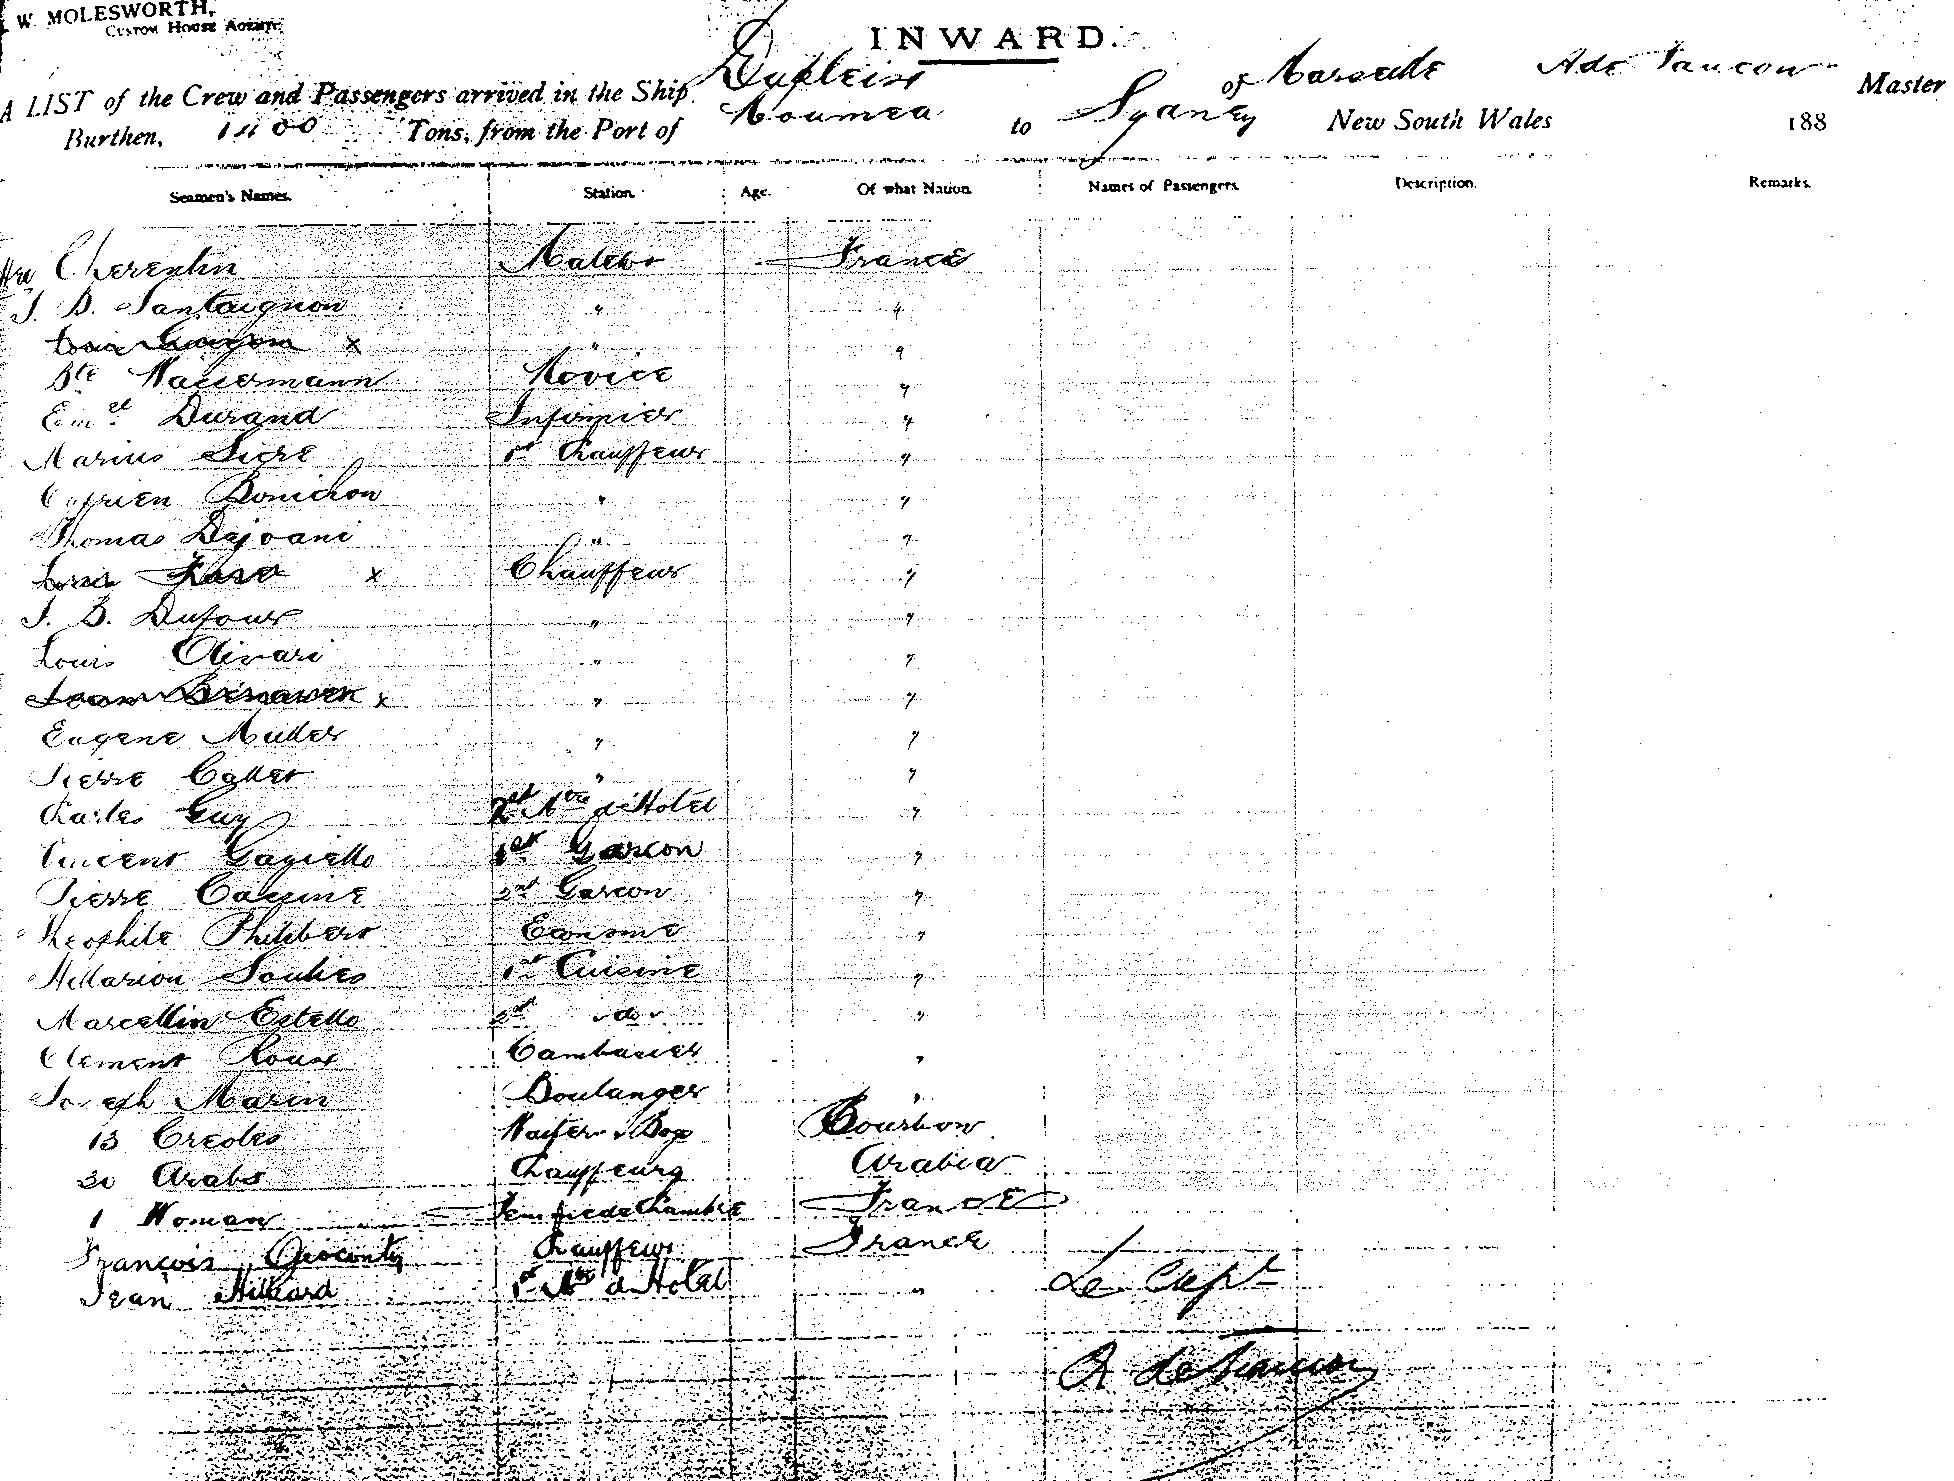 W. MOLESWORTH,
CUSTOM HOUSE AGENT,
INWARD.
A LIST of the Crew and Passengers arrived in the Ship Dupleix of Marseille A de Faucon Master
Burthen, 1400 Tons, from the Port of Noumea to Sydney New South Wales 188
Seamen's Names. Station. Age. Of what Nation. Names of Passengers. Description. Remarks.
Matelot France
J. B. Santaignon " "
x " "
Bte Wassermann Novice "
Eml Durand Infirmier "
Marius Sicre 1er Chauffeur "
Cyprien Bonichon " "
Thomas Dajoani " "
Louis x Chauffeur "
J. B. Dufour " "
Louis Olivari " "
x " "
Eugene Muller " "
Pierre " "
Charles Guy 2nd Mtre d'Hotel "
Vincent Gagiello 1er Garcon "
Pierre Cassine 2nd Garcon "
Theophile Philibert Econome "
Hillarion Soulies 1er Cuisine "
Marcellin Estello 2nd do "
Clement Roux Cambusier "
Joseph Marin Boulanger "
13 Creoles Waiter & Boy Bourbon
30 Arabs Chauffeurs Arabia
1 Woman Femme de Chambre France
François Chauffeur France
Jean Hilliard 1er Mtre d'Hotel "
Le Capt
A de Faucon